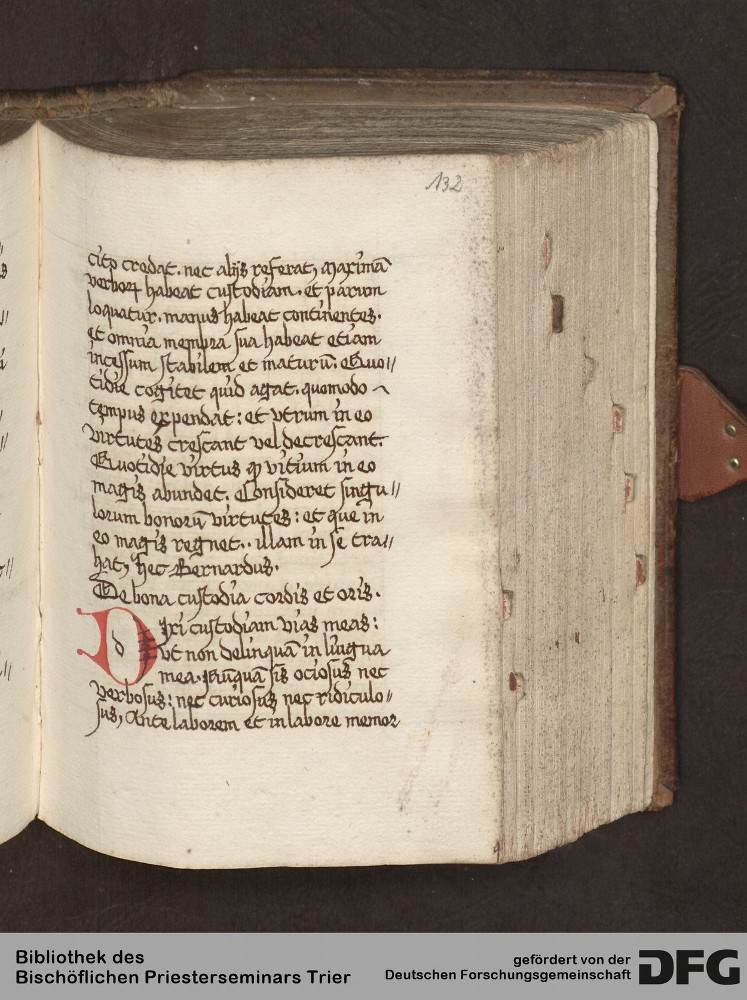 132
cito credat. nec alijs referat, Maximā
verboꝝ habeat custodiam. et parum
loquatur. manus habeat continentes.
et omnia membra sua habeat etiam
incessum stabilem et maturū. Quo//
tidie cogitet quid agat. quomodo
tempus expendat: et vtrum in eo
virtutes crescant vel decrescant.
Quotidie virtus qͥ vitium in eo
magis abundet. Consideret singu//
lorum bonorū virtutes: et que in
eo magis regnet.. illam in se tra//
hat, Hec Bernardus.
De bona custodia cordis et oris.
Dixi custodiam vias meas:
vt non delinquā in lingua
mea. Nūquā sis ociosus nec
verbosus: nec curiosus nec ridiculo//
sus, Ante laborem et in labore memor
Bibliothek des
Bischöflichen Priesterseminars Trier
gefördert von der
Deutschen Forschungsgemeinschaft
DFG